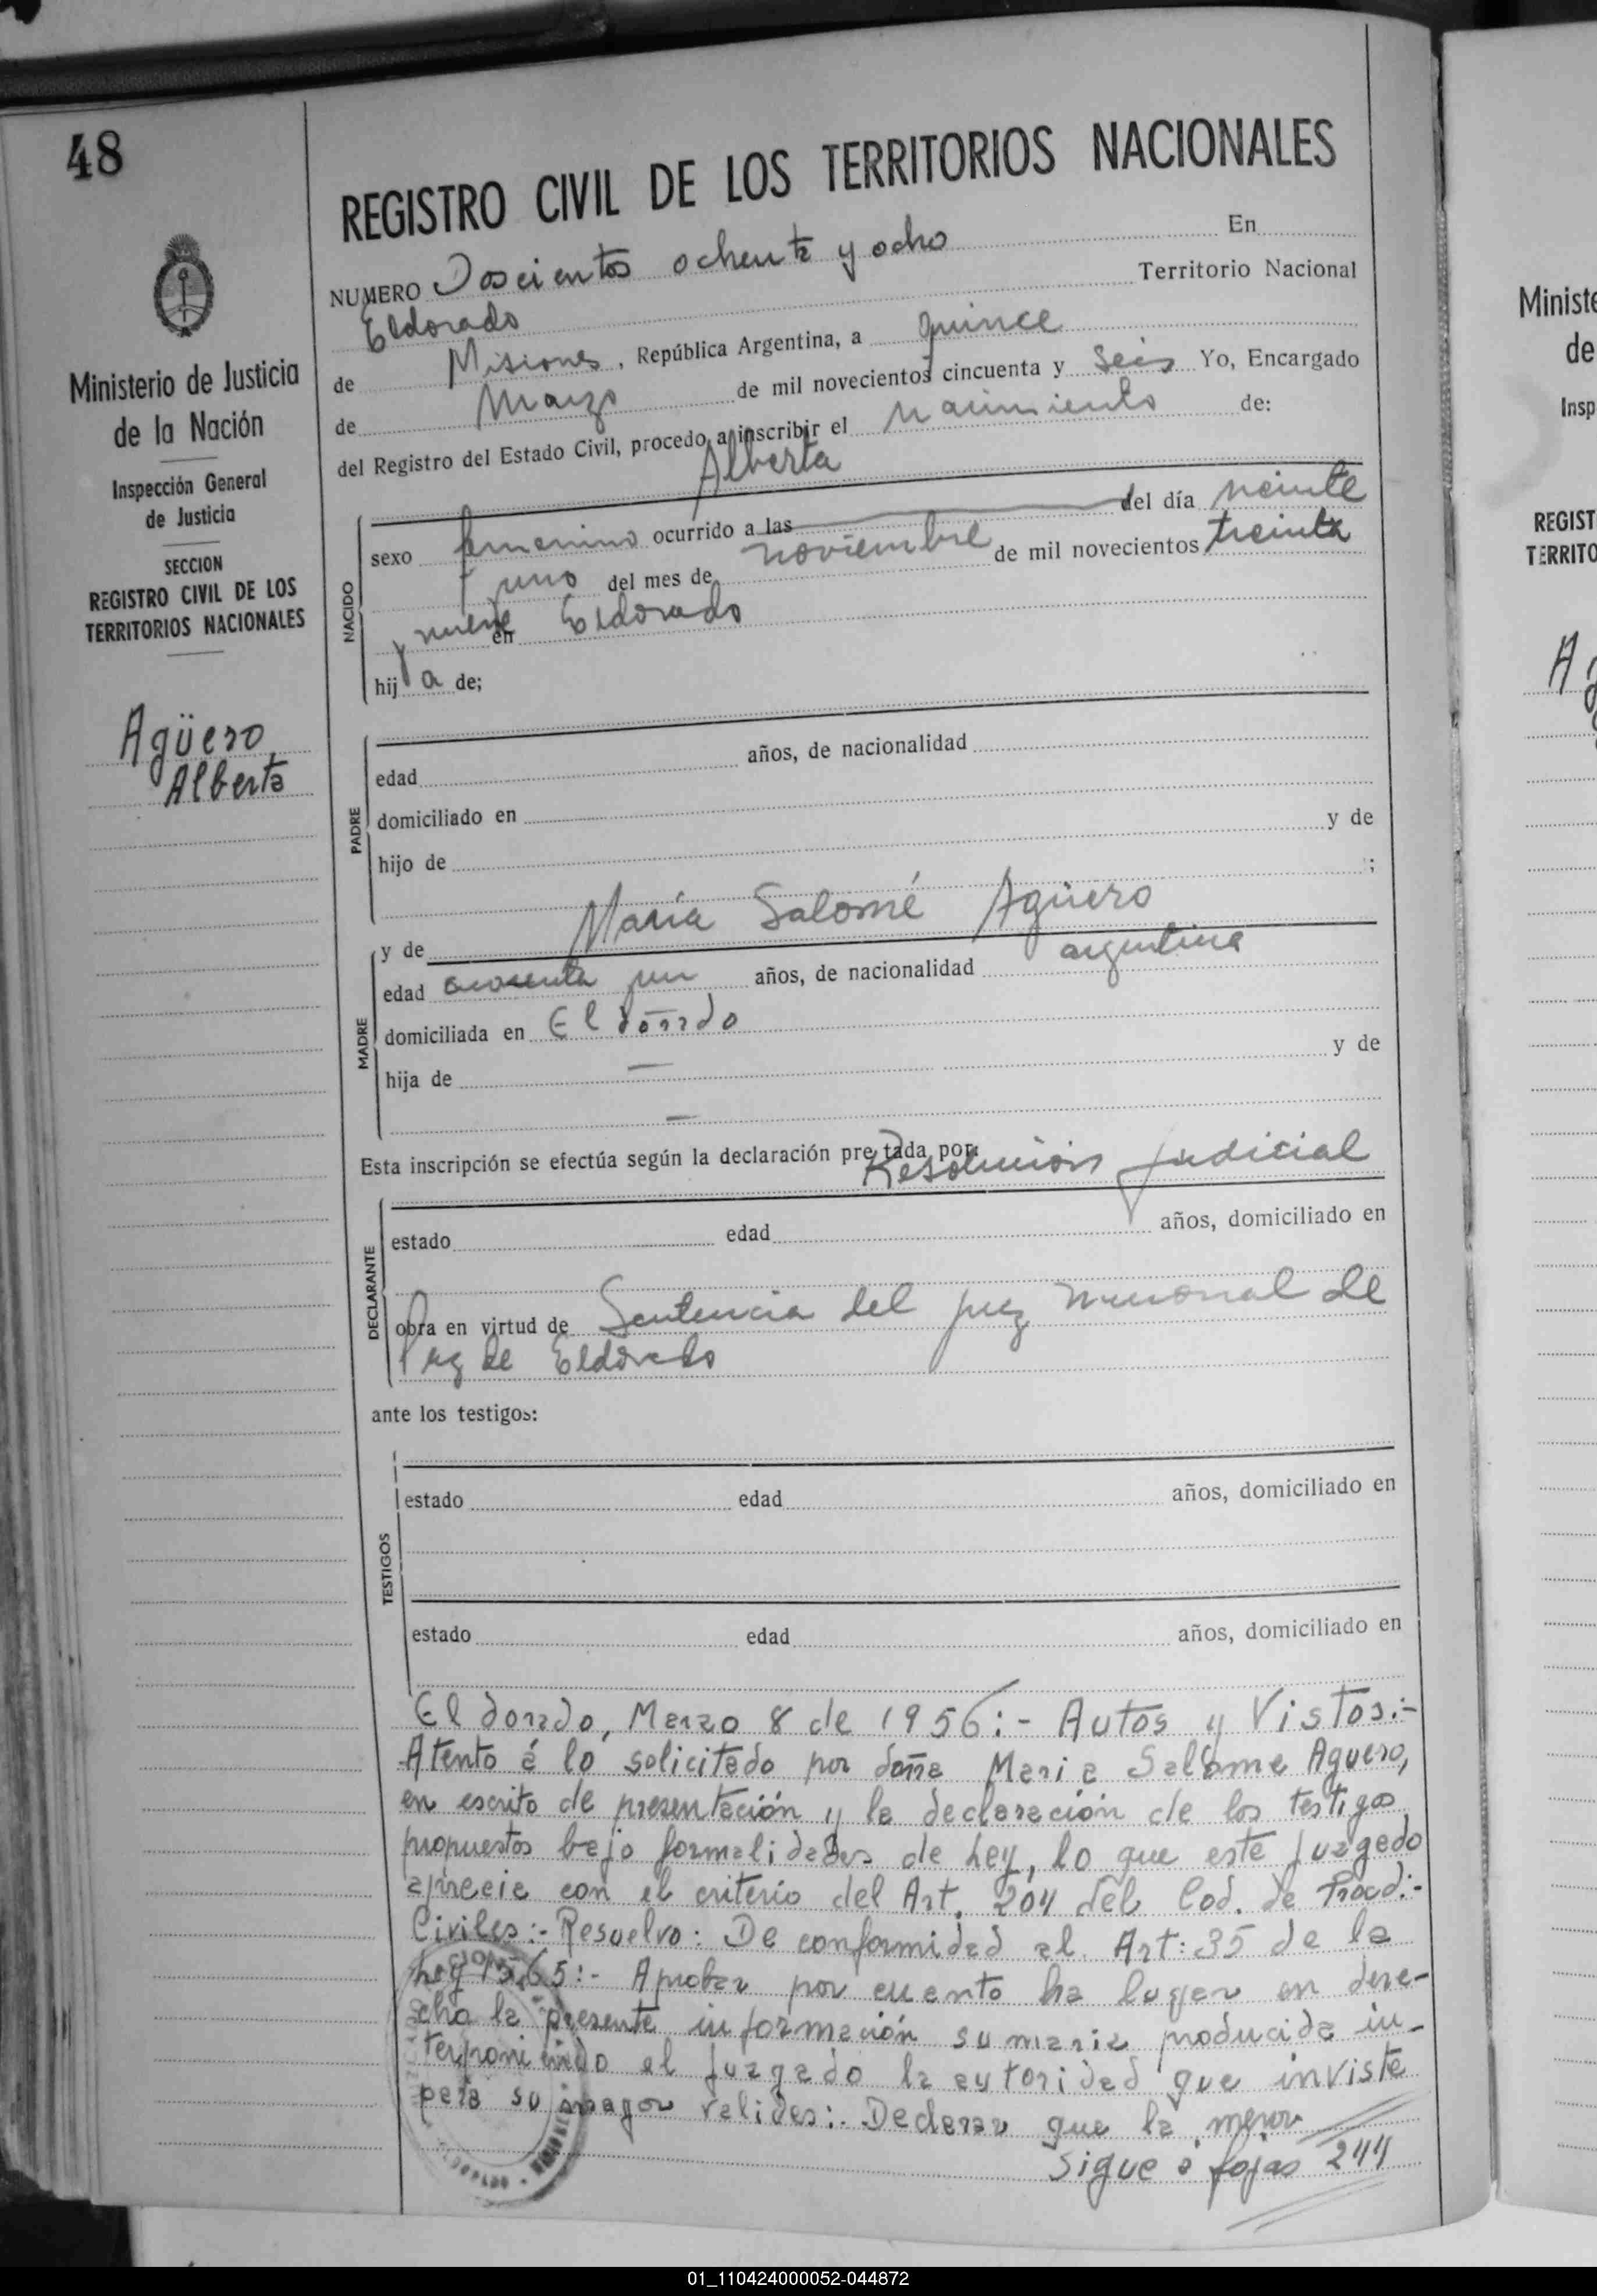 48
Ministerio de Justicia
de la Nación
Inspección General
de Justicia
SECCION
REGISTRO CIVIL DE LOS
TERRITORIOS NACIONALES
Agüero
Alberta
REGISTRO CIVIL DE LOS TERRITORIOS NACIONALES
NUMERO Doscientos ochenta y ocho En
Eldorado Territorio Nacional
de Misiones, República Argentina, a quince
de Marzo de mil novecientos cincuenta y seis Yo, Encargado
del Registro del Estado Civil, procedo a inscribir el nacimiento de:
Alberta
NACIDO
sexo femenino ocurrido a las del día veinte
y uno del mes de noviembre de mil novecientos treinta
y nueve en Eldorado
hija de;
PADRE
edad años, de nacionalidad
domiciliado en
hijo de y de
;
MADRE
y de María Salomé Agüero
edad cuarenta y un años, de nacionalidad argentina
domiciliada en Eldorado
hija de — y de
—
Esta inscripción se efectúa según la declaración pre tada por:
Resolución judicial
DECLARANTE
estado edad años, domiciliado en
obra en virtud de Sentencia del juez nacional de
Paz de Eldorado
ante los testigos:
TESTIGOS
estado edad años, domiciliado en
estado edad años, domiciliado en
Eldorado, Marzo 8 de 1956:- Autos y Vistos:-
Atento á lo solicitado por doña Maria Salome Aguero,
en escrito de presentación y la declaración de los testigos
propuestos bajo formalidades de Ley, lo que este Juzgado
aprecie con el criterio del Art. 204 del Cod. de Proced:-
Civiles:- Resuelvo: De conformidad al Art: 35 de la
Ley 1565:- Aprobar por cuanto ha lugar en dere-
cho la presente información sumaria producida in-
terponiendo el Juzgado la autoridad que inviste
para su mayor validez:. Declarar que la menor
Sigue a fojas 244
Ministe
de
Insp
REGIST
TERRITO
01_110424000052-044872